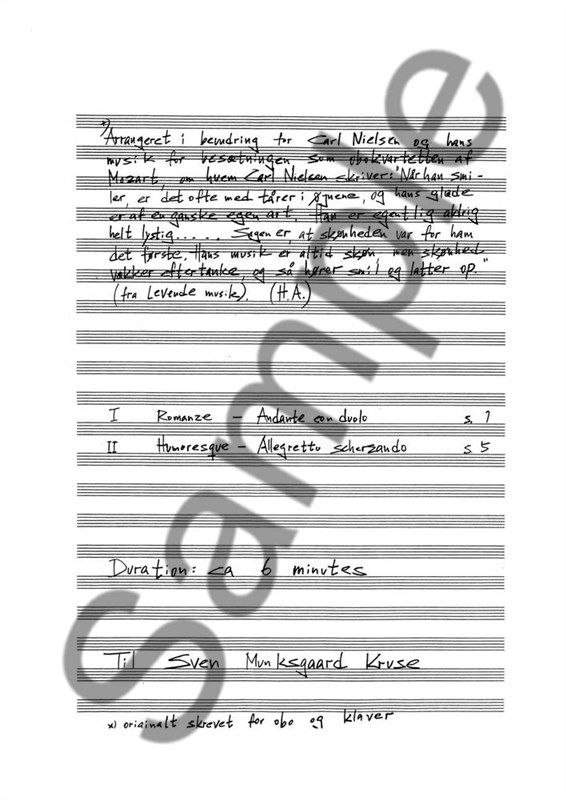 *) Arrangeret i beundring for Carl Nielsen og hans
musik for besætningen som obokvartetten af
Mozart, om hvem Carl Nielsen skriver: "Når han smi-
ler, er det ofte med tårer i øjnene, og hans glæde
er af en ganske egen art. Han er egentlig aldrig
helt lystig..... Sagen er, at skønheden var for ham
det første. Hans musik er altid skøn, men skønhed
vækker eftertanke, og så hører smil og latter op."
(fra Levende musik). (H.A.)
I Romanze - Andante con duolo s. 1
II Humoresque - Allegretto scherzando s 5
Duration: ca 6 minutes
Til Sven Munksgaard Kruse
x) originalt skrevet for obo og klaver
Sample